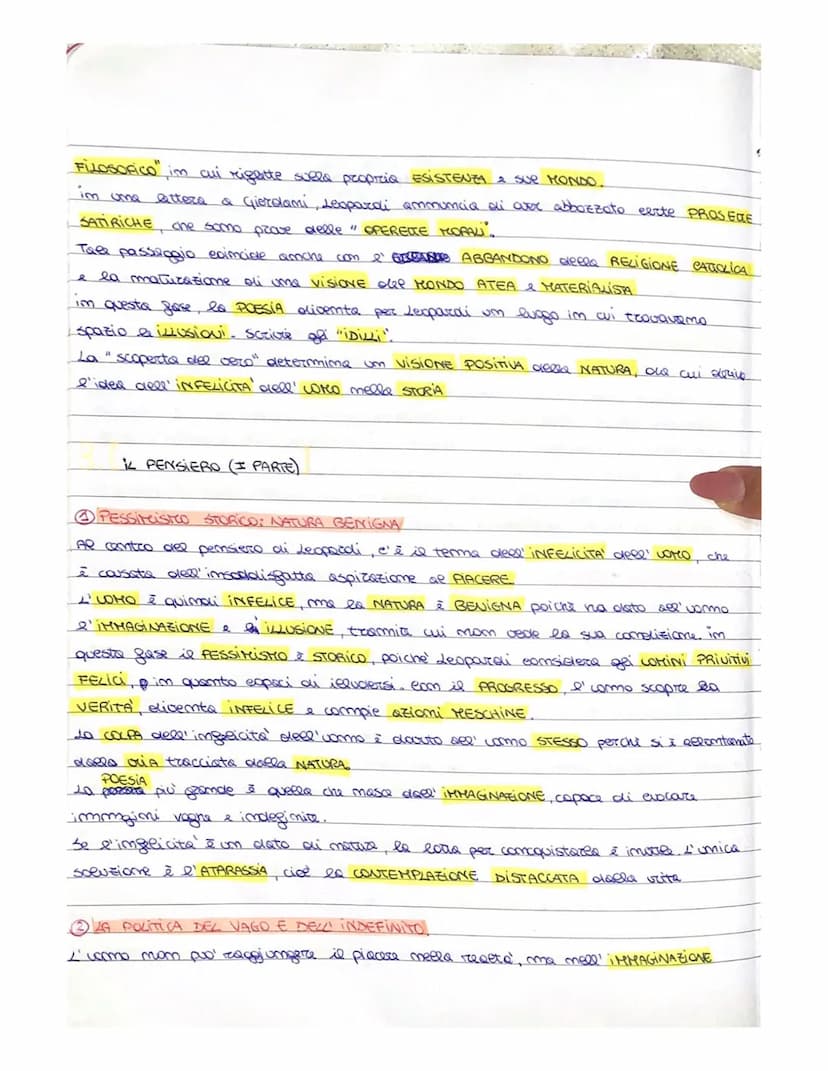 FILOSOFICO", in cui riflette sulla propria ESISTENZA e sul MONDO.
in una lettera a Gierdami, Leopardi annuncia di aver abbozzato certe PROSETTE
SATIRICHE, che sono prove delle "OPERETTE MORALI".
Tale passaggio coincide anche con l' ABBANDONO della RELIGIONE CATTOLICA
e la maturazione di una VISIONE del MONDO ATEA e MATERIALISTA
in questa fase, la POESIA diventa per Leopardi un luogo in cui trovavamo
spazio le iLLUSIONI. Scrive gli "IDILLI".
La "scoperta del vero" determina un VISIONE POSITIVA della NATURA, da cui
l'idea dell'INFELICITA' dell'UOMO nella STORIA
IL PENSIERO (I PARTE)
① PESSIMISMO STORICO: NATURA BENIGNA
Al centro del pensiero di Leopardi, c'è il tema dell'INFELICITA' dell'UOMO, che
è causata dell'insoddisfatta aspirazione al PIACERE
L'UOMO è quindi INFELICE, ma la NATURA è BENIGNA poiché ha dato all'uomo
l'IMMAGINAZIONE e iLLUSIONE, tramite cui non vede la sua condizione. in
questa fase il PESSIMISMO è STORICO, poiche' Leopardi considera gli UOMINI PRIMITIVI
FELICI, in quanto capaci di illudersi. con il PROGRESSO, l'uomo scopre la
VERITA', diventa INFELICE e compie AZIONI MESCHINE.
La COLPA dell'infelicita' dell'uomo è dovuto all'uomo STESSO perché si è allontanato
dalla VIA tracciata dalla NATURA.
La POESIA più grande è quella che nasce dall'IMMAGINAZIONE, capace di evocare
immagini vaghe e indefinite.
Se l'infelicita' è un dato di natura, la lotta per conquistarla è inutile. L'unica
soluzione è l'ATARASSIA, cioè la CONTEMPLAZIONE DISTACCATA dalla vita
② LA POLITICA DEL VAGO E DELL'INDEFINITO
L'uomo non puo' raggiungere il piacere nella realta', ma nell'IMMAGINAZIONE